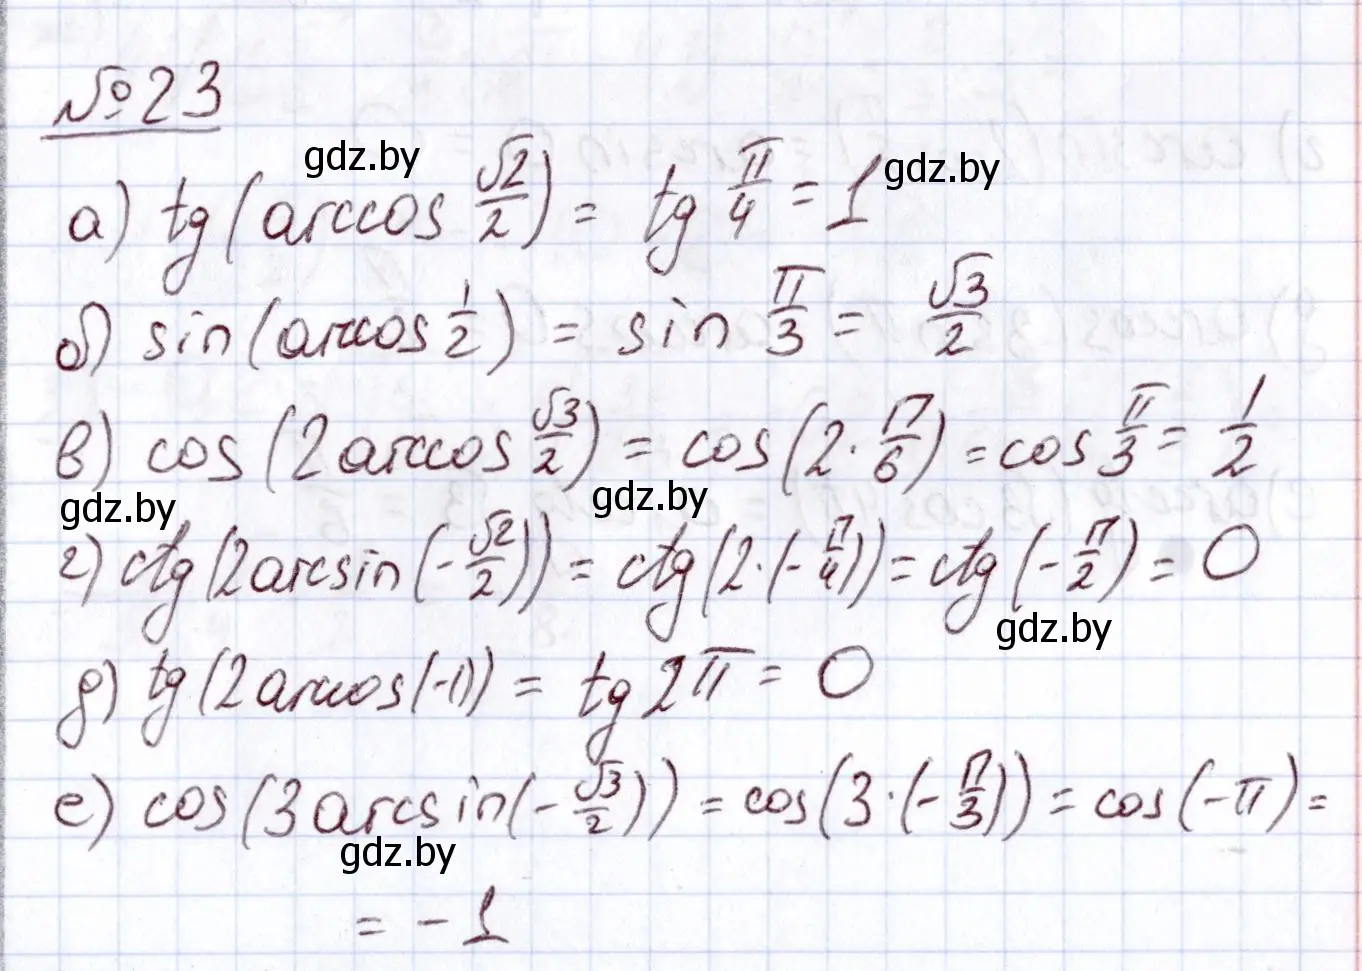 № 23
gdz.by
gdz.by
а) tg(arccos √2/2) = tg π/4 = 1
б) sin(arccos 1/2) = sin π/3 = √3/2
в) cos(2arccos √3/2) = cos(2·π/6) = cos π/3 = 1/2
gdz.by
gdz.by
г) ctg(2arcsin(-√2/2)) = ctg(2·(-π/4)) = ctg(-π/2) = 0
gdz.by
д) tg(2arccos(-1)) = tg 2π = 0
е) cos(3arcsin(-√3/2)) = cos(3·(-π/3)) = cos(-π) =
gdz.by
= -1